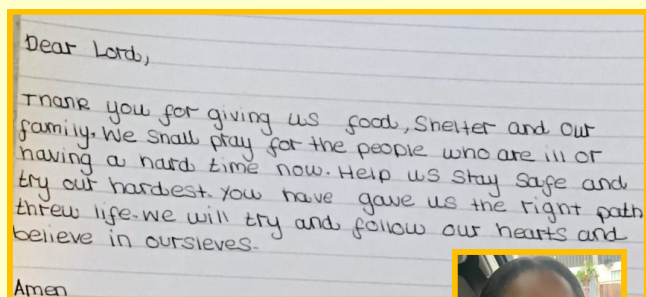 Dear Lord,
Thank you for giving us food, Shelter and our
family. We shall pray for the people who are ill or
having a hard time now. Help us stay safe and
try our hardest. You have gave us the right path
threw life. We will try and follow our hearts and
believe in oursleves.
Amen